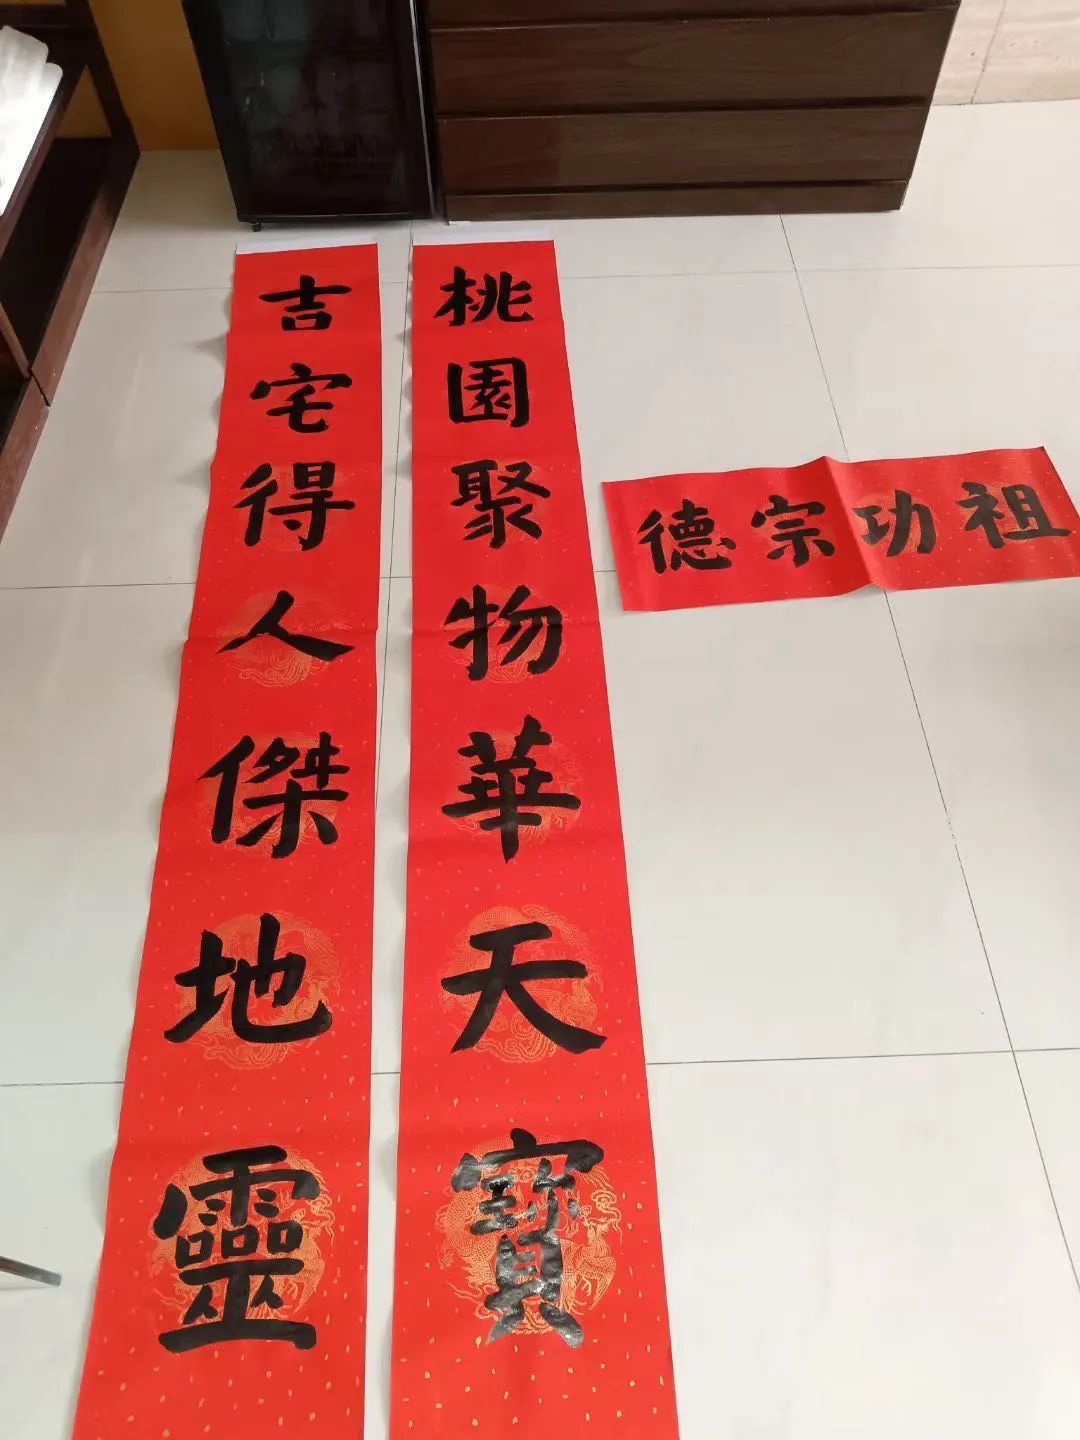 桃園聚物華天寶
吉宅得人傑地靈
祖功宗德